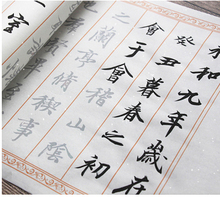 永和九年歲在
癸丑暮春之初
會于會稽山陰
之蘭亭脩稧事
室